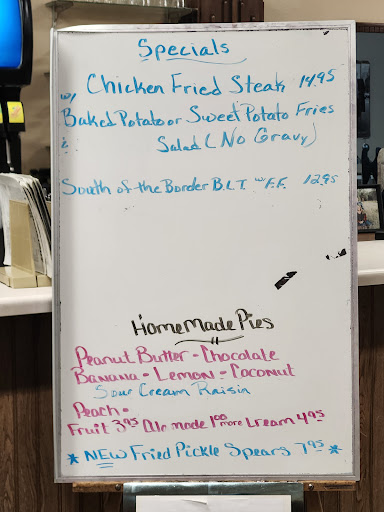 Specials
w/ Chicken Fried Steak 14.95
Baked Potato or Sweet Potato Fries
& Salad (No Gravy)
South of the Border B.L.T. w/ F.F. 12.95
HomeMade Pies
Peanut Butter - Chocolate
Banana - Lemon - Coconut
Sour Cream Raisin
Peach -
Fruit 3.95 Ala mode 1.00 more Cream 4.95
* NEW Fried Pickle Spears 7.95 *